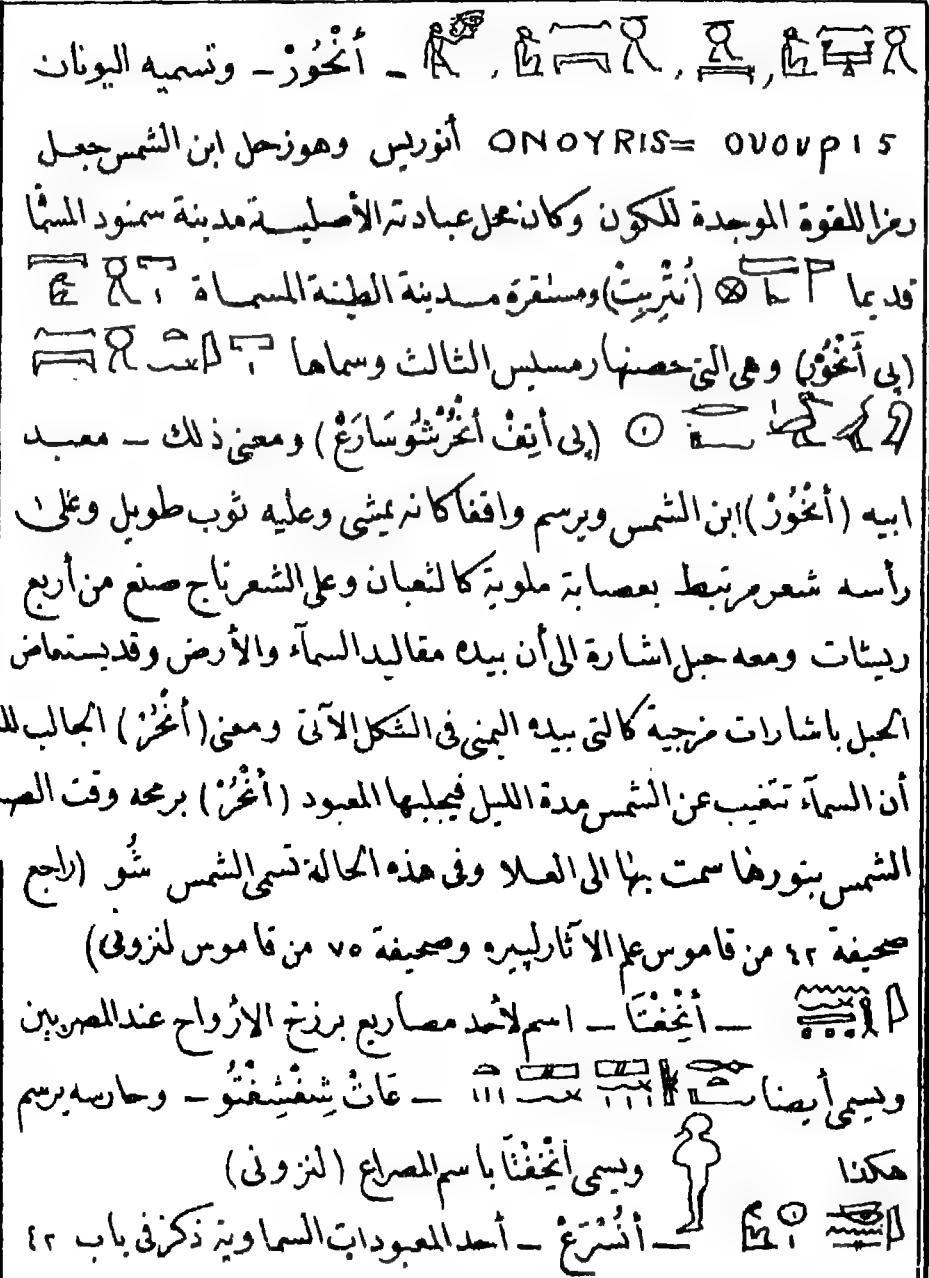 – أَنْخُورْ – وتسميه اليونان
ΟΝΟΥΡΙS= ονουρις أنوريس وهو زحل ابن الشمس جعل
رمزا للقوة الموجدة للكون وكان محل عبادته الأصلية مدينة سمنود المسمّا
قديما (نُتِرْبِيتْ) ومستقره مدينة الطينة المسماة
(پى أَنْخُورْ) وهى التى حصنها رمسيس الثالث وسماها
(پى أَتِفْ أَنْخُرْشُوسَارَعْ) ومعنى ذلك – معبد
ابيه (أَنْخُورْ) ابن الشمس ويرسم واقفا كانه يمشى وعليه ثوب طويل وعلى
رأسه شعر مرتبط بعصابة ملوية كالثعبان وعلى الشعر تاج صنع من أربع
ريشات ومعه حبل اشارة الى أن بيده مقاليد السمآء والأرض وقد يستعاض
الحبل باشارات مزجية كالتى بيده اليمنى فى الشكل الآتى ومعنى (أَنْخُرْ) الجالب لل
أن السمآء تتغيب عن الشمس مدة الليل فيجلبها المعبود (أَنْخُرْ) برمحه وقت الص
الشمس بنورها سمت بها الى العلا وفى هذه الحالة تسمى الشمس شُو (راجع
صحيفة ٤٢ من قاموس علم الاثار لپيره وصحيفة ٧٥ من قاموس لنزونى)
– أَنْخِفْتَا – اسم لأحد مصاريع برزخ الأرواح عند المصريين
ويسمى أيضا – عَاتْ شِفْشِفْتُو – وحارسه يرسم
هكذا ويسمى أَنْخِفْتَا باسم المصراع (لنزونى)
– أَنُسْرَعْ – أحد المعبودات السماوية ذكر فى باب ٤٢